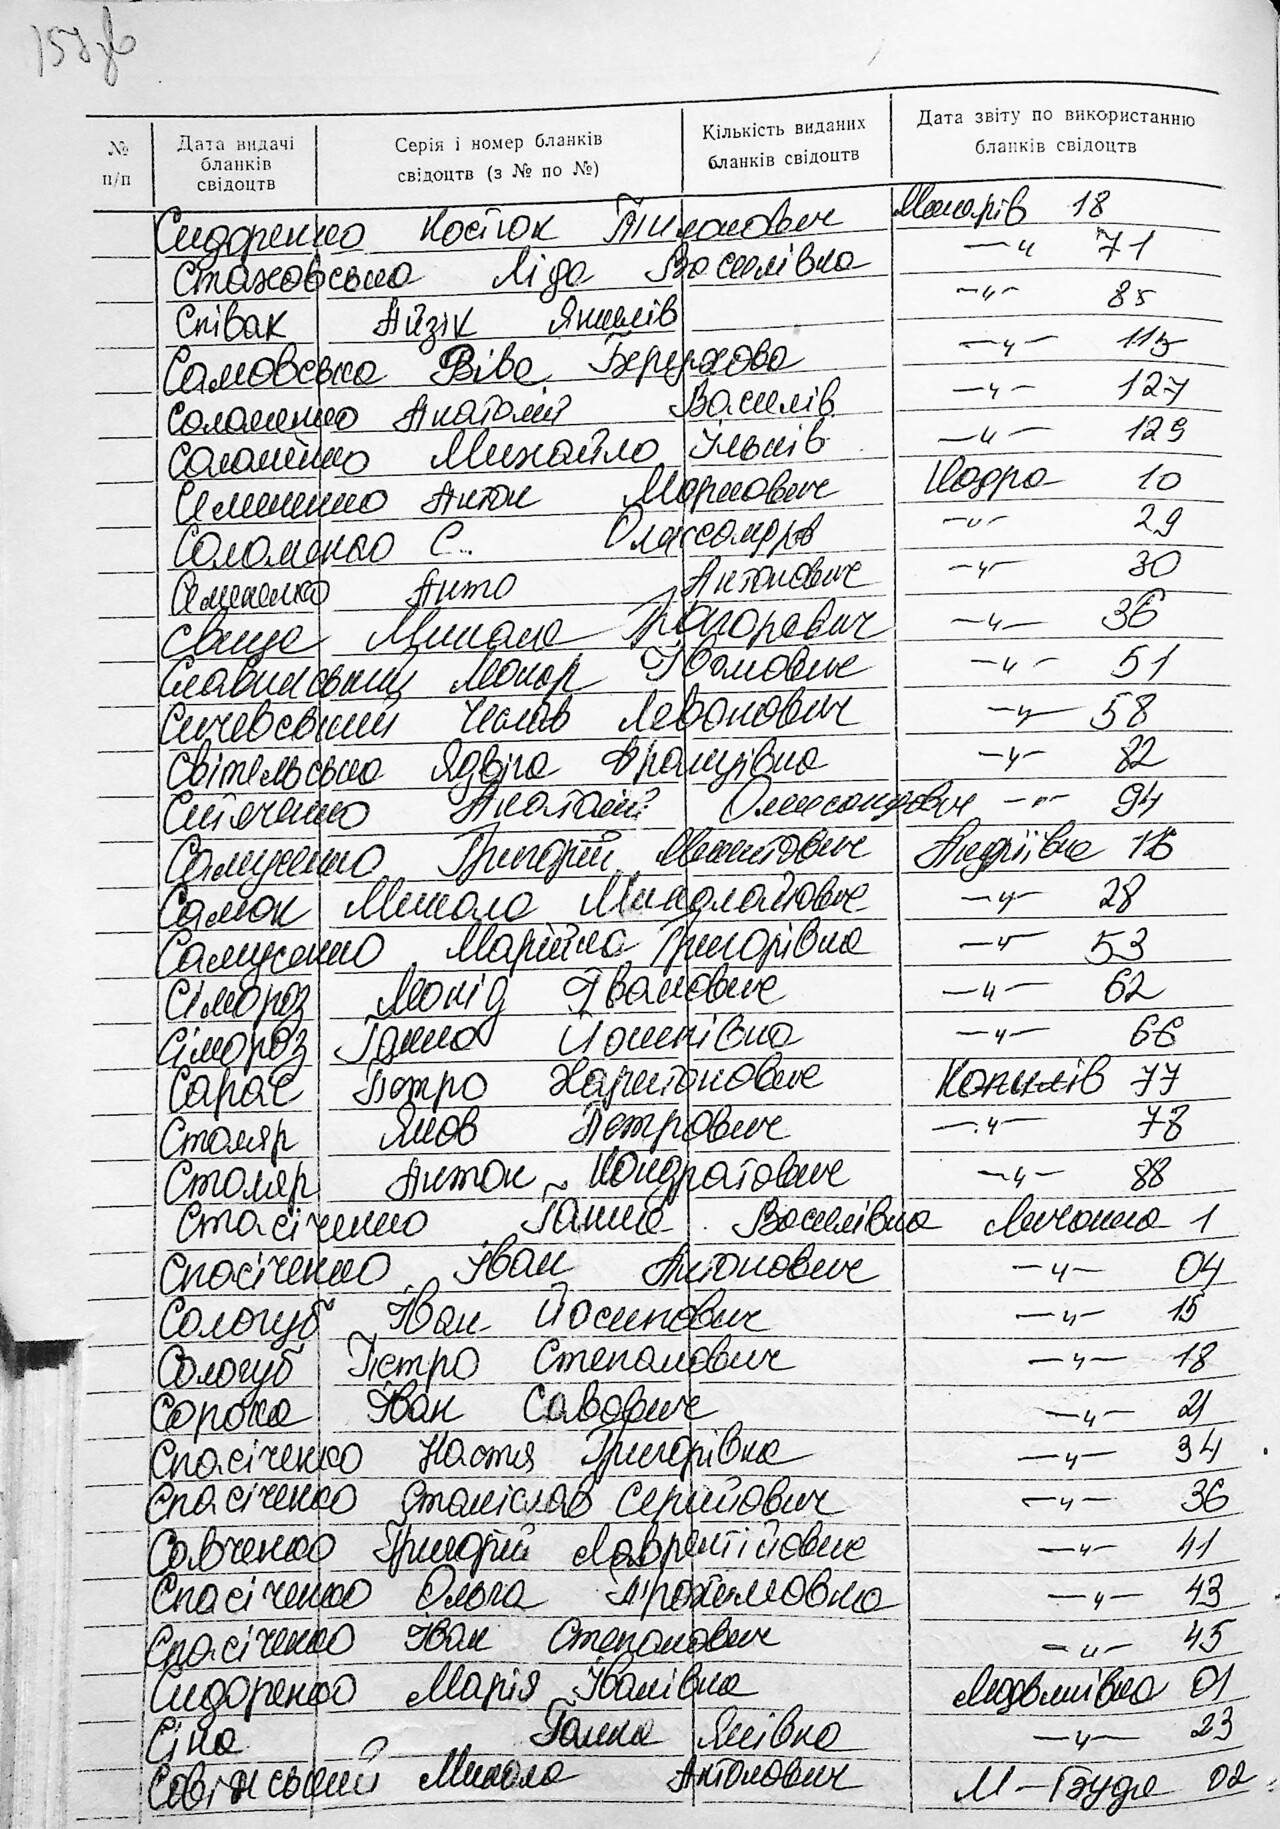 158 зв
№ п/п
Дата видачі бланків свідоцтв
Серія і номер бланків свідоцтв (з № по №)
Кількість виданих бланків свідоцтв
Дата звіту по використанню бланків свідоцтв
Сидоренко Костюк Тимонович Макарів 18
Стаховська Ліда Василівна —"— 71
Співак Айзік Янкелів —"— 85
Самовська Віва —"— 113
Соломенко Анатолій Василів —"— 127
Соломенко Михайло Ільків —"— 129
Семененко Антон Маркович Кодра 10
Соломенко С... Олександрів —"— 29
Семененко Анто Антонович —"— 30
Микола Григоревич —"— 36
Славинський Іванович —"— 51
Сичевський Чеслав Леванович —"— 58
Світельська Ядвіга Францівна —"— 82
Анатолій Олександрович —"— 94
Самусенко Григорій Микитович Андріївка 16
Самок Микола Миколайович —"— 28
Самусенко Марійка Григорівна —"— 53
Сімороз Леонід Іванович —"— 62
Сімороз Ганна Йосипівна —"— 66
Сарач Петро Харитонович Копилів 77
Столяр Яков Петрович —"— 78
Столяр Антон Кондратович —"— 88
Стасіченко Ганна Василівна Личанка 1
Спасіченко Іван Антонович —"— 04
Сологуб Іван Йосипович —"— 15
Сологуб Петро Степанович —"— 18
Сорока Іван Савович —"— 21
Спасіченко Настя Григорівна —"— 34
Спасіченко Станіслав Сергійович —"— 36
Савченко Григорій Лаврентійович —"— 41
Спасіченко Ольга Трохимовна —"— 43
Спасіченко Іван Степанович —"— 45
Сидоренко Марія Іванівна Людвинівка 01
Сіка Ганна Яківна —"— 23
Савінський Микола Антонович М-Буда 02